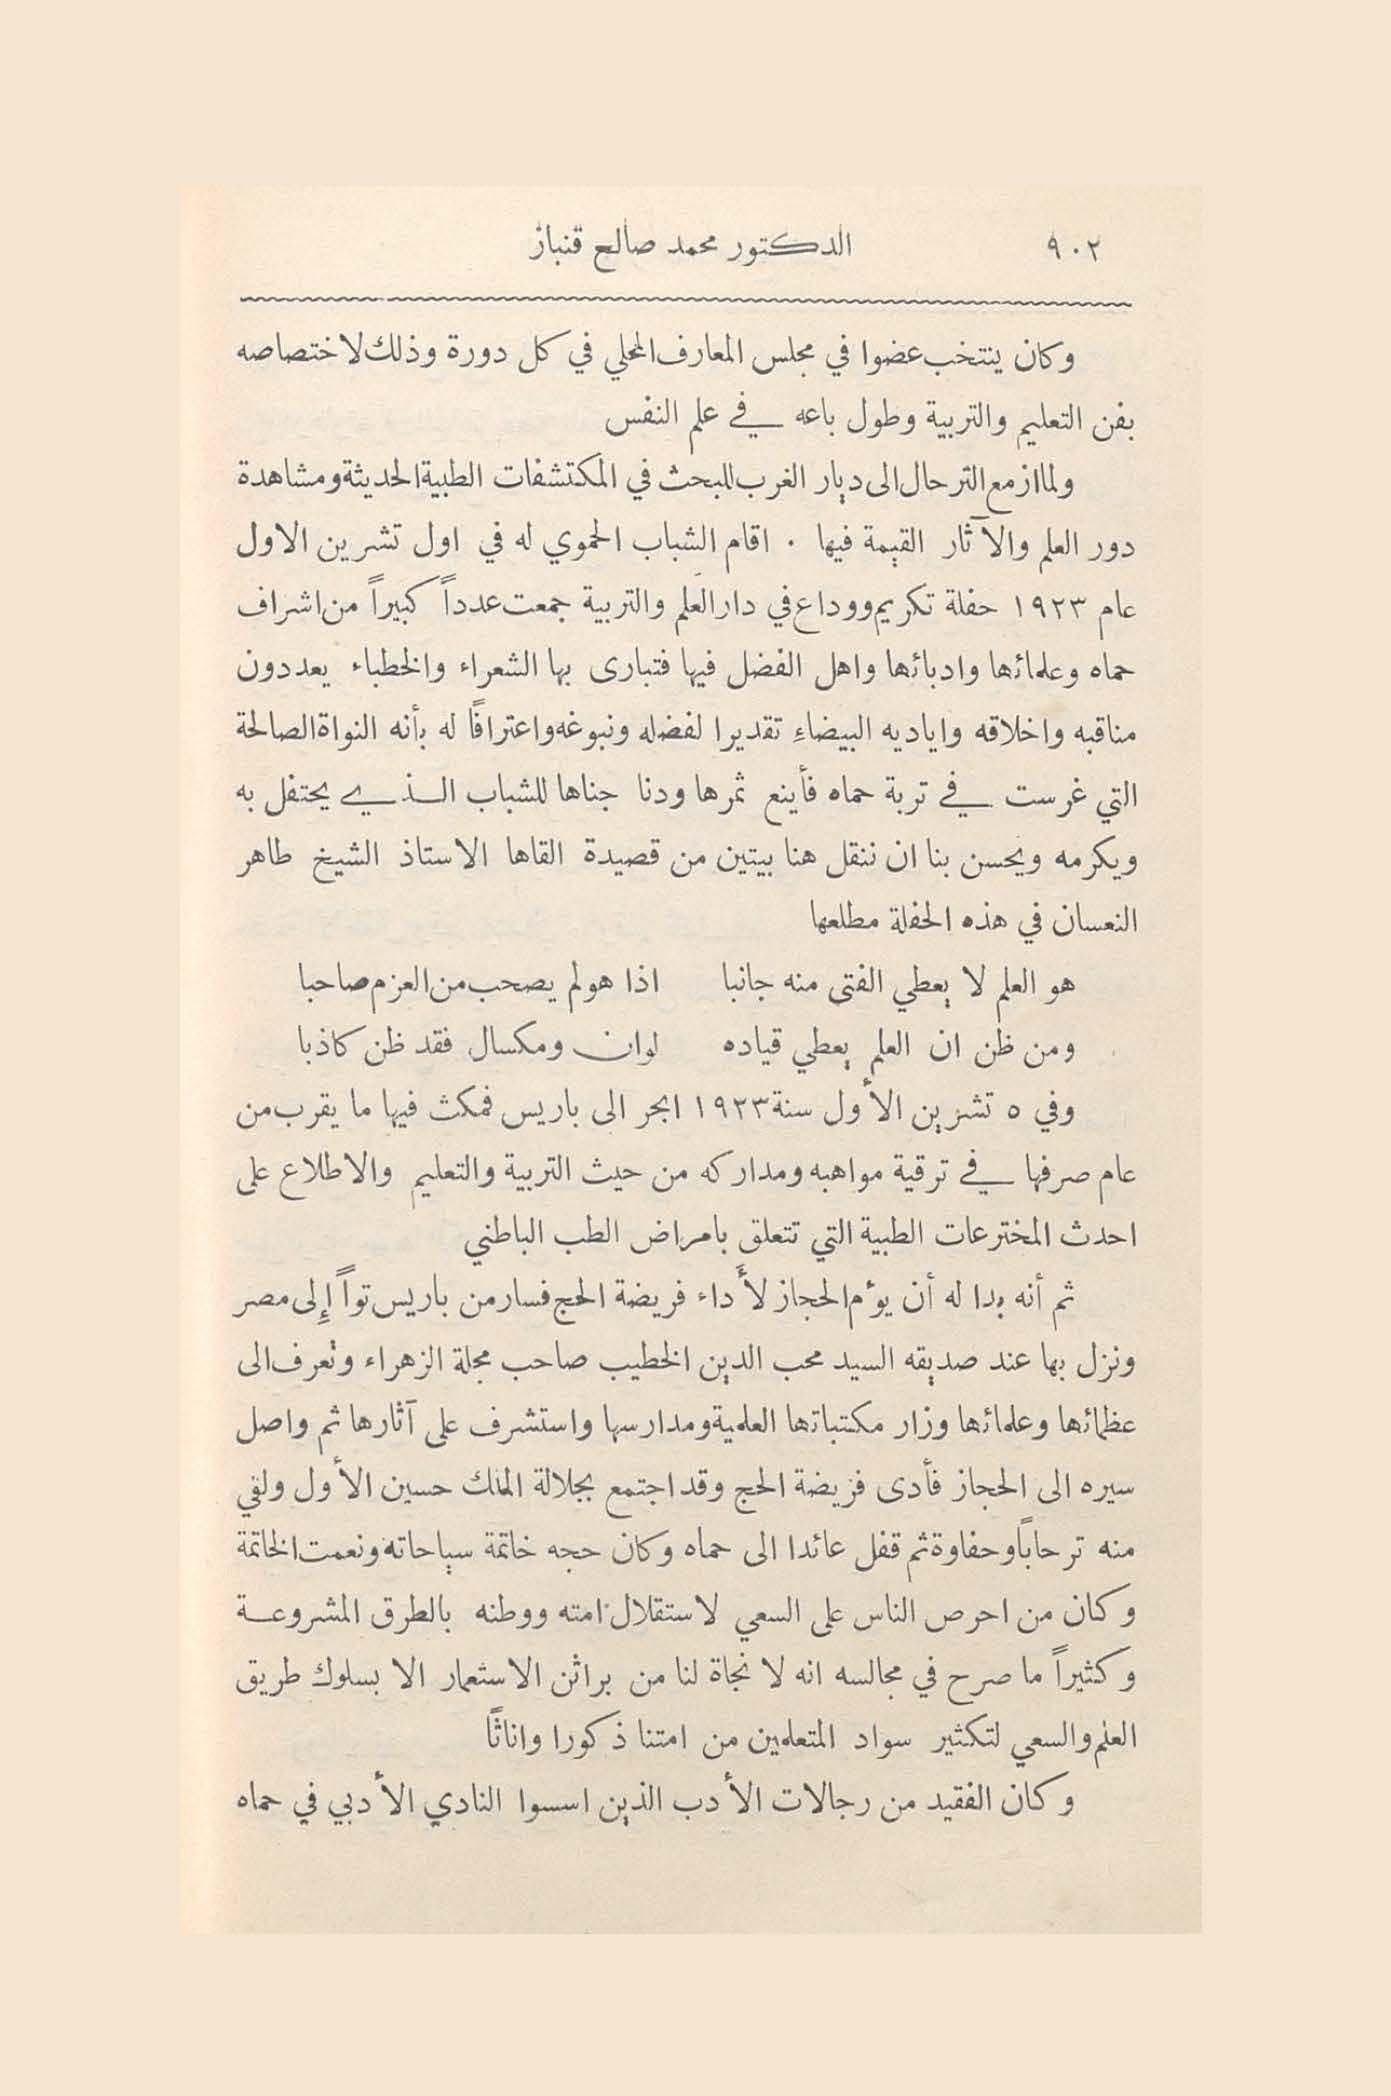 ٩٠٢ الدكتور محمد صالح قنباز
وكان ينتخب عضوا في مجلس المعارف المحلي في كل دورة وذلك لاختصاصه
بفن التعليم والتربية وطول باعه في علم النفس
ولما ازمع الترحال الى ديار الغرب للبحث في المكتشفات الطبية الحديثة ومشاهدة
دور العلم والآثار القيمة فيها . اقام الشباب الحموي له في اول تشرين الاول
عام ١٩٢٣ حفلة تكريم ووداع في دار العلم والتربية جمعت عدداً كبيراً من اشراف
حماه وعلمائها وادبائها واهل الفضل فيها فتبارى بها الشعراء والخطباء يعددون
مناقبه واخلاقه واياديه البيضاءِ تقديرا لفضله ونبوغه واعترافًا له بأنه النواة الصالحة
التي غرست في تربة حماه فأينع ثمرها ودنا جناها للشباب الذي يحتفل به
ويكرمه ويحسن بنا ان ننقل هنا بيتين من قصيدة القاها الاستاذ الشيخ طاهر
النعسان في هذه الحفلة مطلعها
هو العلم لا يعطي الفتى منه جانبا اذا هو لم يصحب من العزم صاحبا
ومن ظن ان العلم يعطي قياده لوان ومكسال فقد ظن كاذبا
وفي ٥ تشرين الأول سنة ١٩٢٣ ابحر الى باريس فمكث فيها ما يقرب من
عام صرفها في ترقية مواهبه ومداركه من حيث التربية والتعليم والاطلاع على
احدث المخترعات الطبية التي تتعلق بامراض الطب الباطني
ثم أنه بدا له أن يؤم الحجاز لأَداء فريضة الحج فسار من باريس تواً إلى مصر
ونزل بها عند صديقه السيد محب الدين الخطيب صاحب مجلة الزهراء وتعرف الى
عظمائها وعلمائها وزار مكتباتها العلمية ومدارسها واستشرف على آثارها ثم واصل
سيره الى الحجاز فأدى فريضة الحج وقد اجتمع بجلالة الملك حسين الأول ولقي
منه ترحابًا وحفاوة ثم قفل عائدا الى حماه وكان حجه خاتمة سياحاته ونعمت الخاتمة
وكان من احرص الناس على السعي لاستقلال امته ووطنه بالطرق المشروعة
وكثيراً ما صرح في مجالسه انه لا نجاة لنا من براثن الاستعمار الا بسلوك طريق
العلم والسعي لتكثير سواد المتعلمين من امتنا ذكورا واناثًا
وكان الفقيد من رجالات الأدب الذين اسسوا النادي الأدبي في حماه